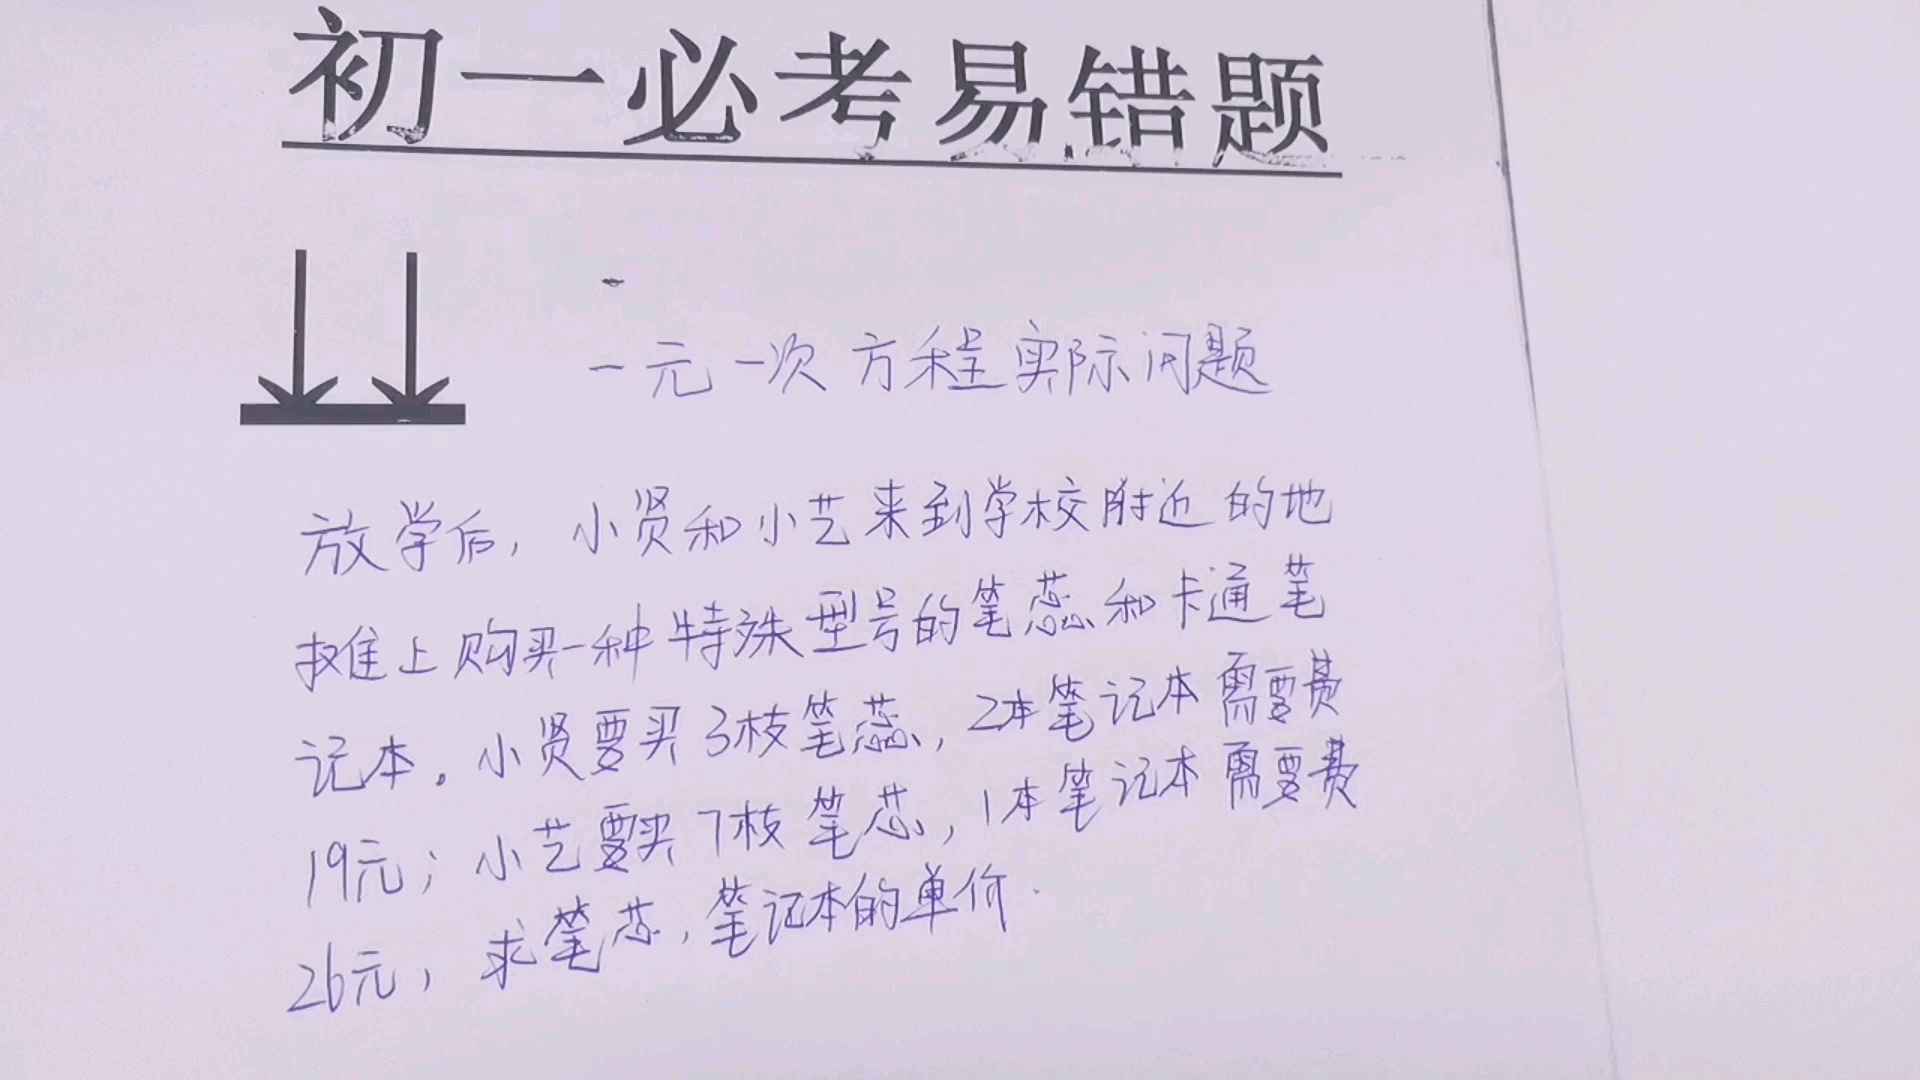 初一必考易错题
一元一次方程实际问题
放学后，小贤和小艺来到学校附近的地
摊上购买一种特殊型号的笔蕊和卡通笔
记本。小贤要买3枝笔蕊，2本笔记本需要费
19元；小艺要买7枝笔芯，1本笔记本需要费
26元，求笔芯，笔记本的单价.